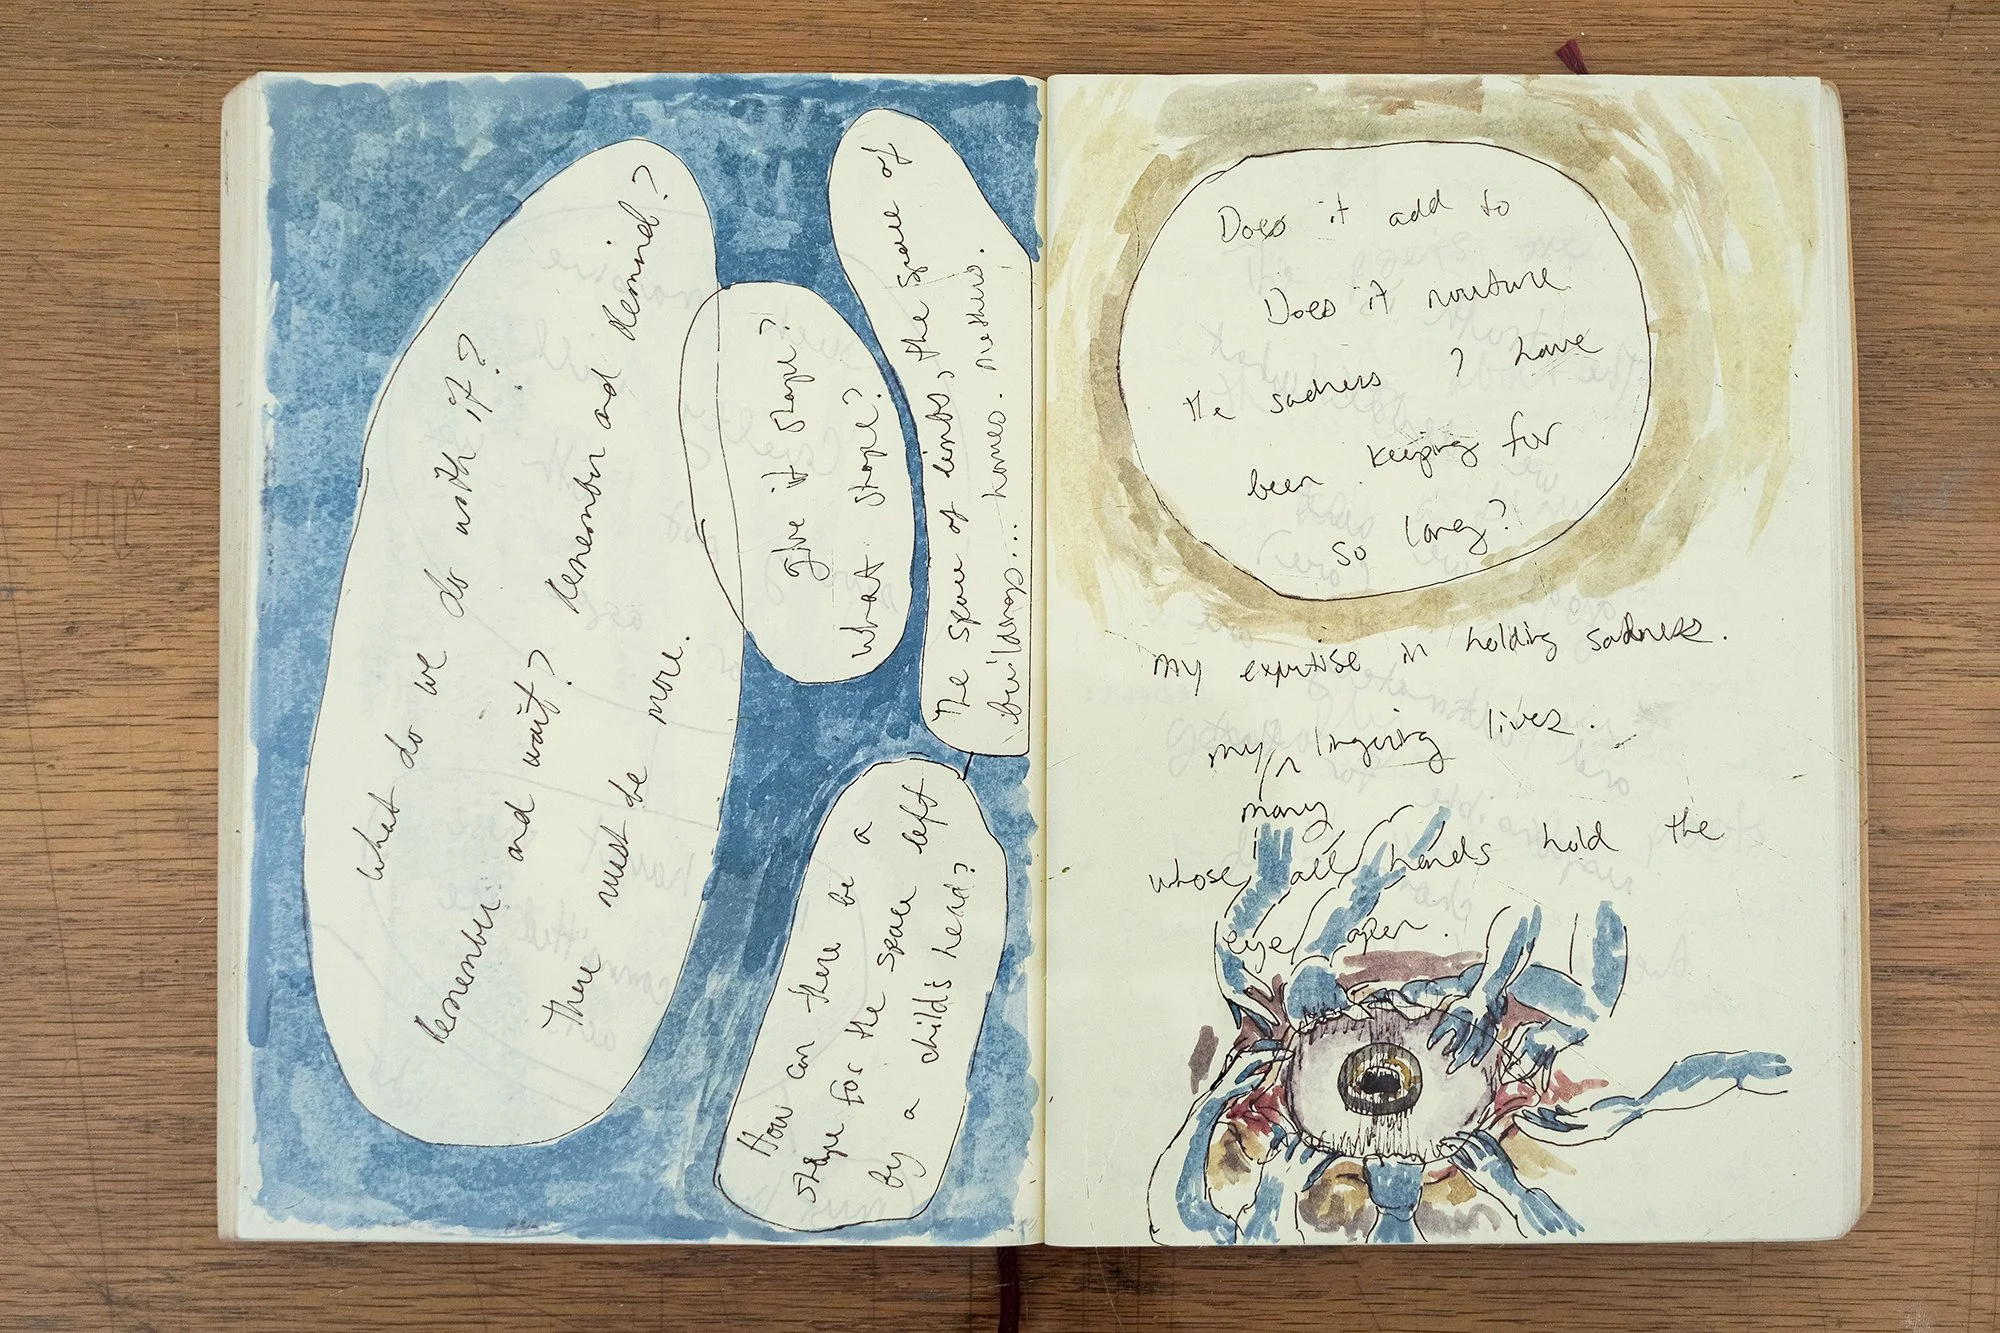 What do we do with it?
Remember: and wait? Remember and Remind?
There must be more.
Give it shape?
What shape?
The space of limbs, the space of
buildings... homes. Mothers.
How can there be a
shape for the space left
by a child's head?
Does it add to
Does it nurture
the sadness I have
been keeping for
so long?
my expertise in holding sadness.
my lingering lives.
many
whose all hands hold the
eye open.